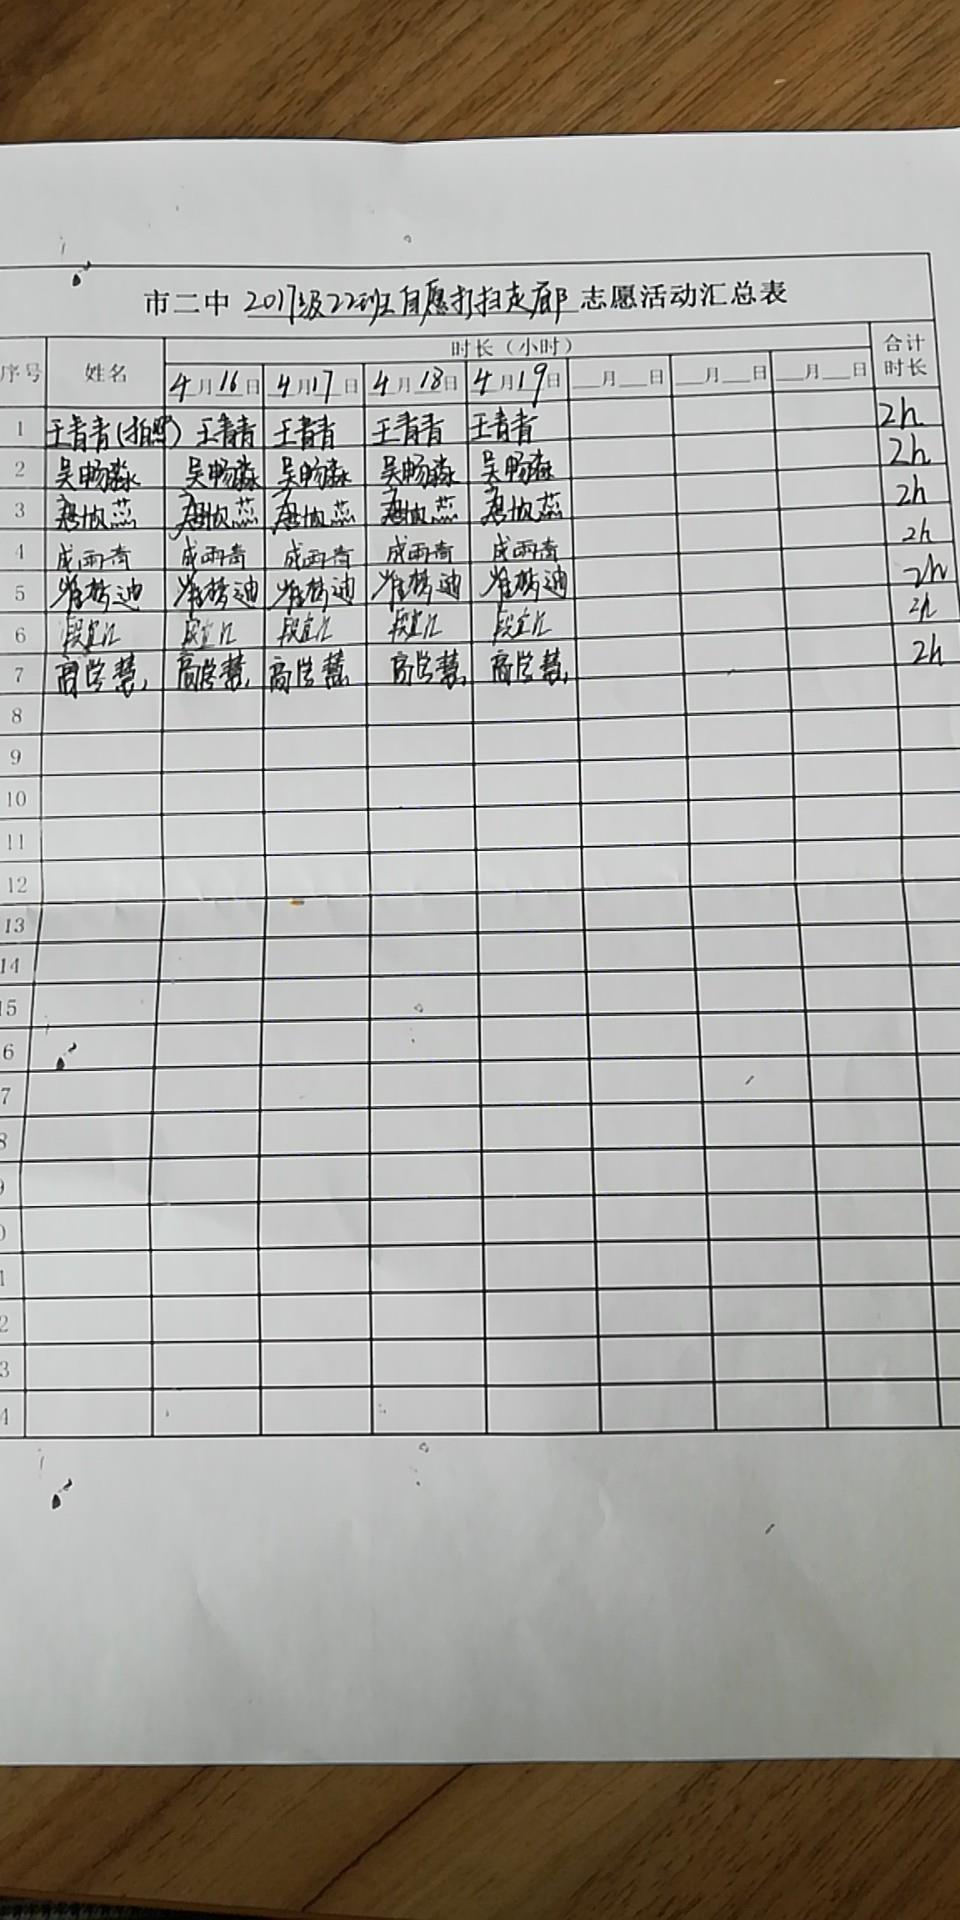 市二中 2017级22班自愿打扫走廊 志愿活动汇总表
序号 姓名 时长（小时） 合计时长
4月16日 4月17日 4月18日 4月19日 __月__日 __月__日 __月__日
1 王青青(拍照) 王青青 王青青 王青青 王青青 2h
2 吴畅淼 吴畅淼 吴畅淼 吴畅淼 吴畅淼 2h
3 2h
4 成雨青 成雨青 成雨青 成雨青 成雨青 2h
5 崔梦迪 崔梦迪 崔梦迪 崔梦迪 崔梦迪 2h
6 段宜汇 段宜汇 段宜汇 段宜汇 段宜汇 2h
7 高学慧 高学慧 高学慧 高学慧 高学慧 2h
8
9
10
11
12
13
14
15
6
7
8
9
0
1
2
3
4